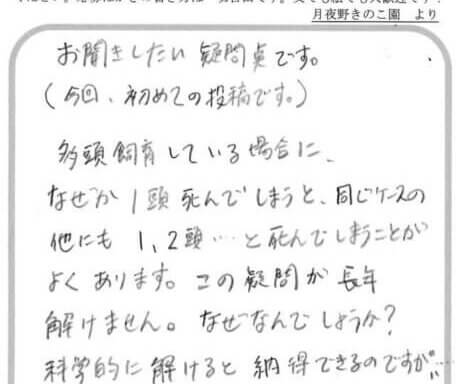 月夜野きのこ園 より
お聞きしたい疑問点です。
(今回、初めての投稿です。)
多頭飼育している場合に、
なぜか1頭死んでしまうと、同じケースの
他にも1、2頭…と死んでしまうことが
よくあります。この疑問が長年
解けません。なぜなんでしょうか?
科学的に解けると納得できるのですが…